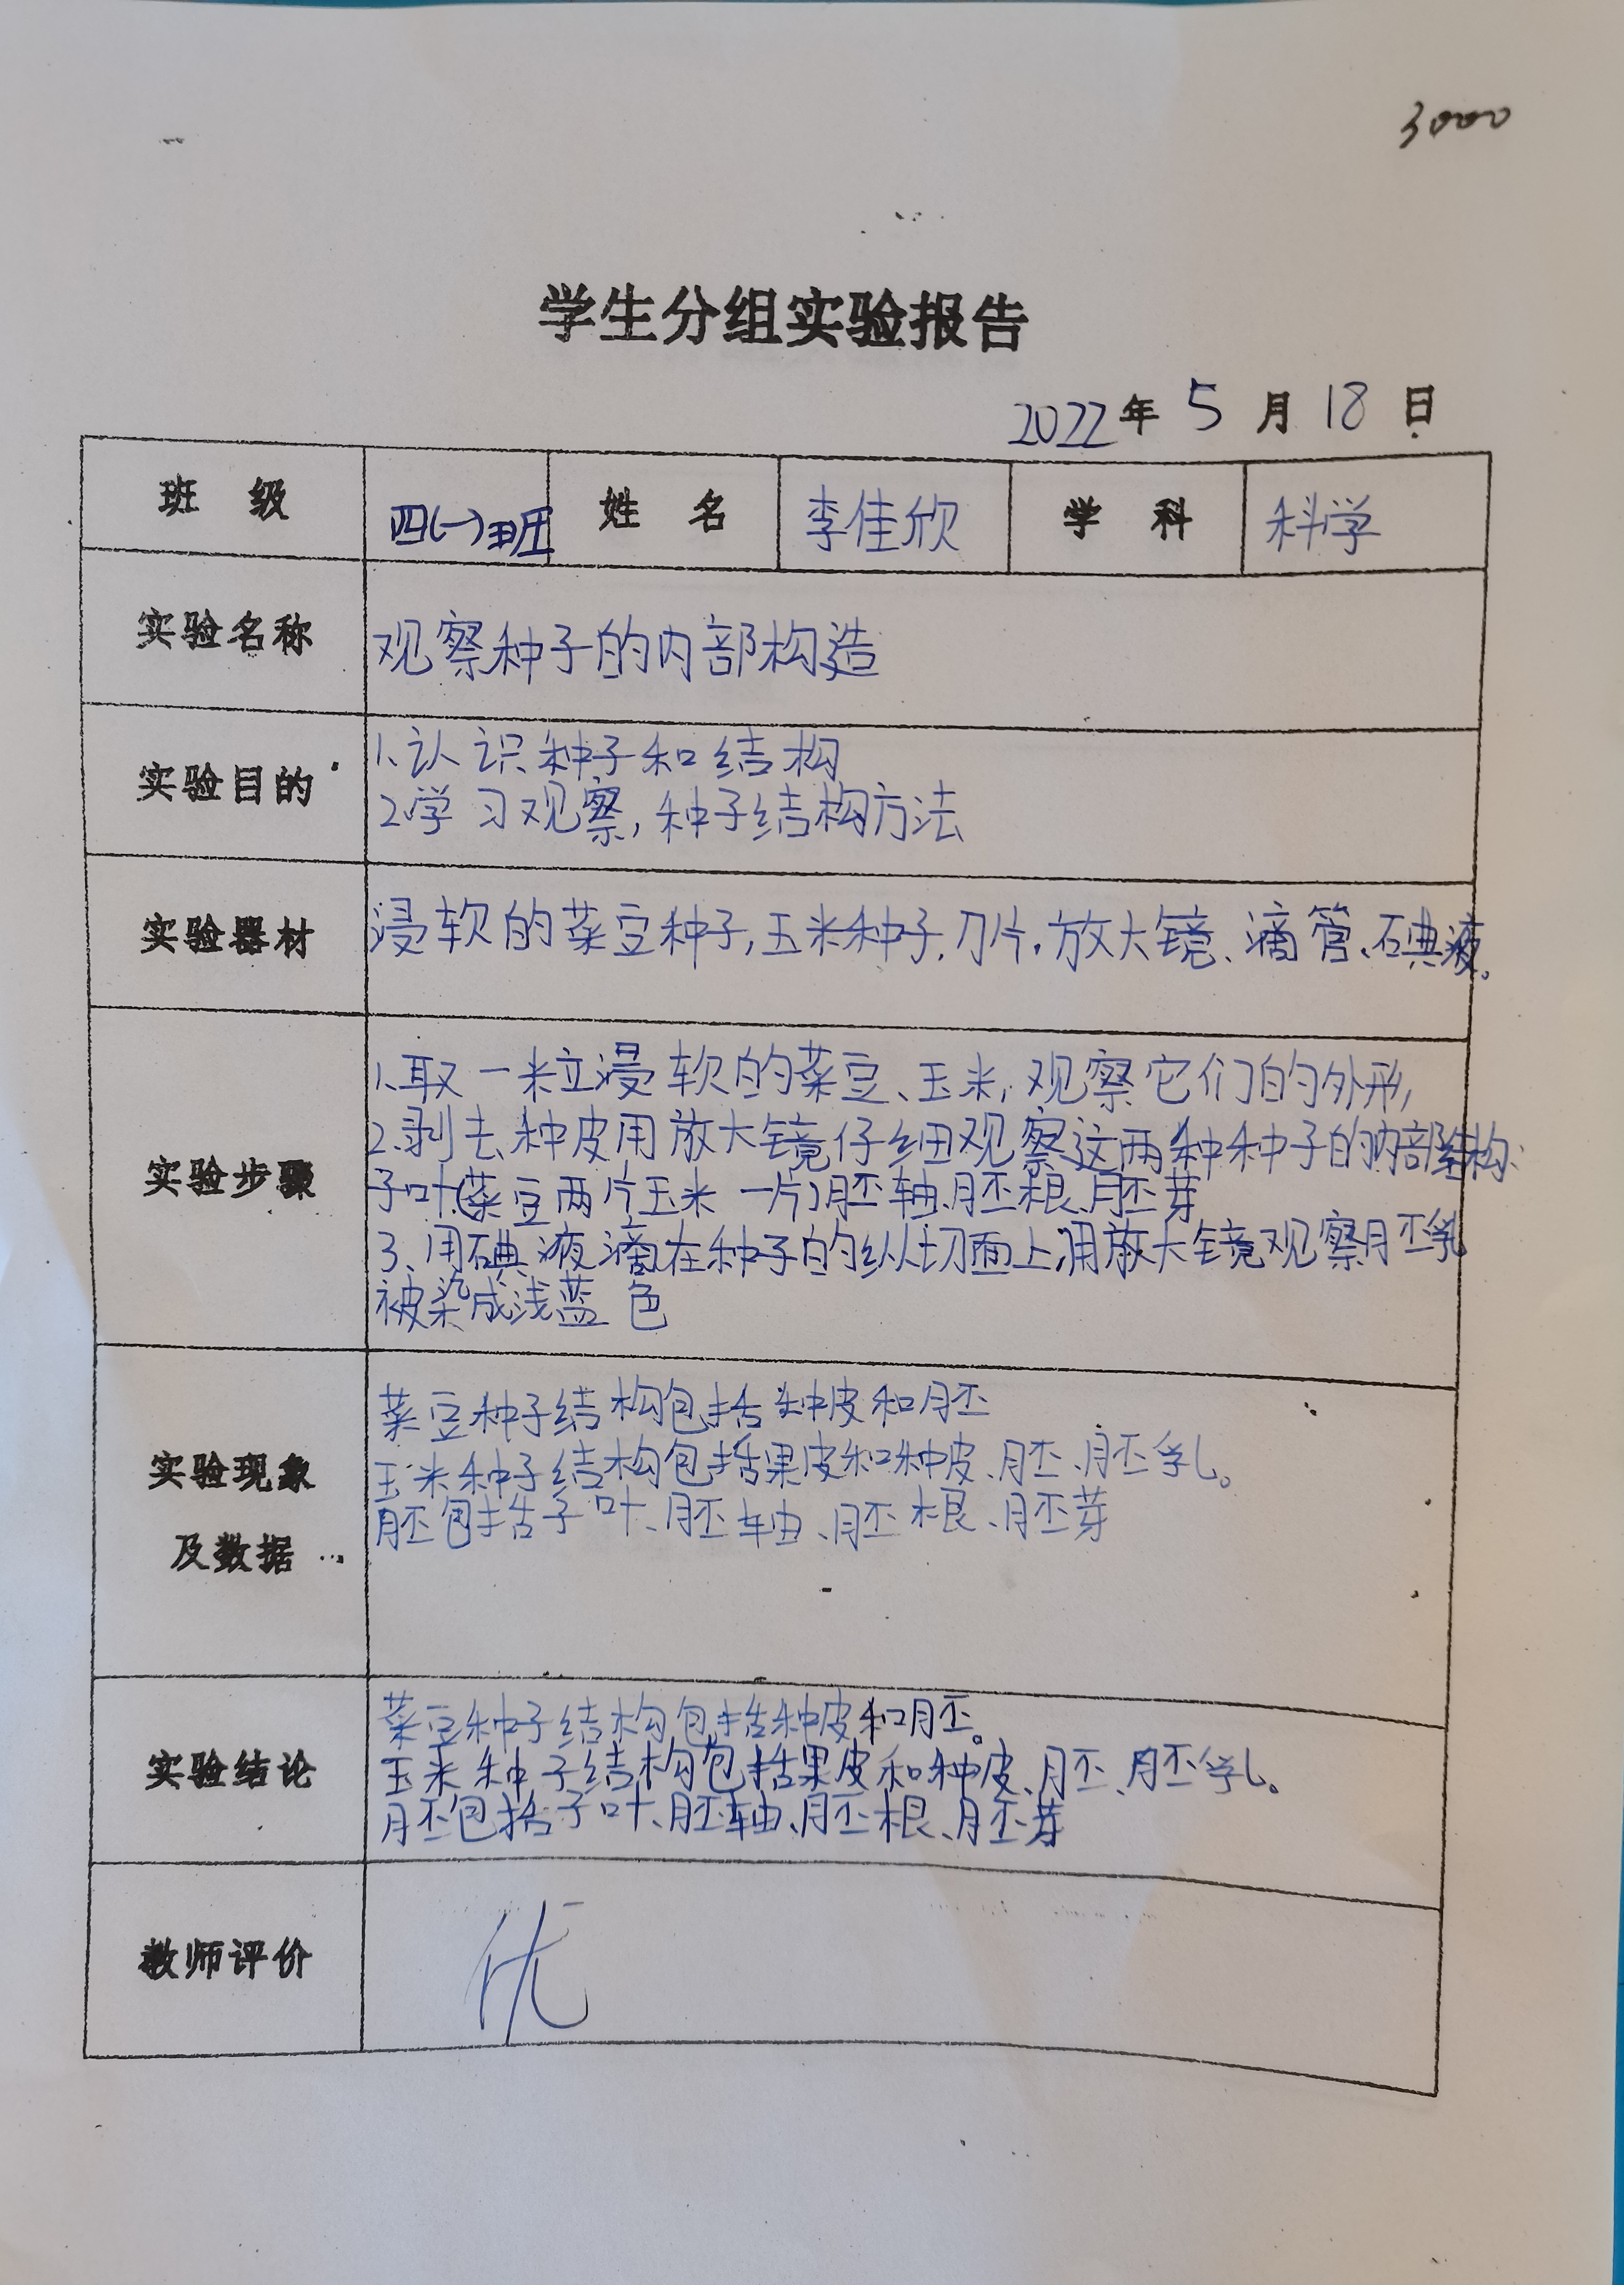 3000
学生分组实验报告
2022年 5 月 18 日
班 级 四(一)班 姓 名 李佳欣 学 科 科学
实验名称 观察种子的内部构造
实验目的
1.认识种子和结构
2.学习观察,种子结构方法
实验器材 浸软的菜豆种子,玉米种子.刀片.放大镜、滴管、碘液。
实验步骤
1.取一粒浸软的菜豆、玉米,观察它们的外形,
2.剥去种皮用放大镜仔细观察这两种种子的内部结构:
子叶(菜豆两片玉米一片)胚轴、胚根、胚芽
3、用碘液滴在种子的纵切面上,用放大镜观察胚乳
被染成浅蓝色
实验现象
及数据
菜豆种子结构包括种皮和胚
玉米种子结构包括果皮和种皮、胚、胚乳。
胚包括子叶、胚轴、胚根、胚芽
实验结论
菜豆种子结构包括种皮和胚。
玉米种子结构包括果皮和种皮、胚、胚乳。
胚包括子叶、胚轴、胚根、胚芽
教师评价 优